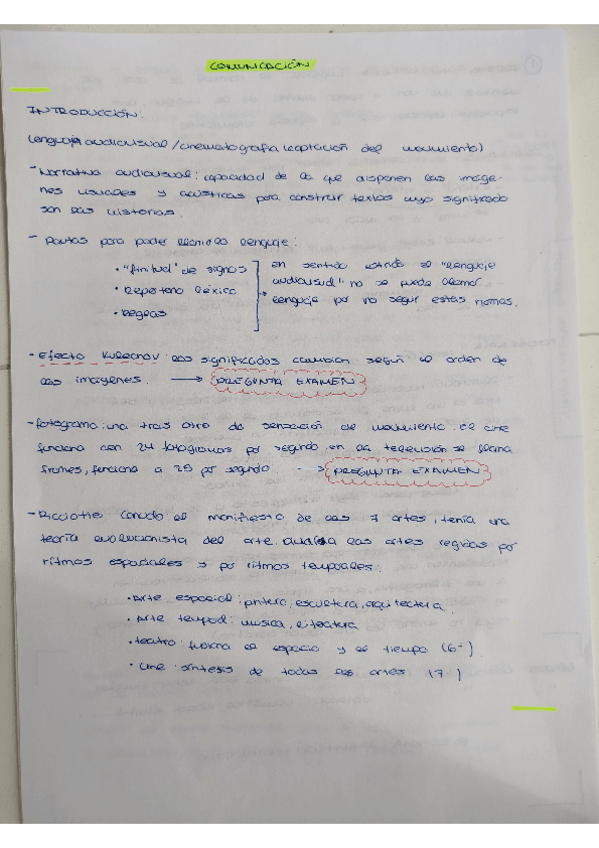 COMUNICACIÓN
INTRODUCCIÓN:
Lenguaje audiovisual / cinematografía (captación del movimiento)
- Narrativa audiovisual: capacidad de la que disponen las imáge-
nes visuales y acústicas para construir textos cuyo significado
son las historias.
- Pautas para poder llamarlo lenguaje:
• "finitud" de signos
• Repertorio léxico
• Reglas
en sentido estricto el "lenguaje
audiovisual" no se puede llamar
lenguaje por no seguir estas normas.
- Efecto Kulechov: los significados cambian según el orden de
las imágenes. → PREGUNTA EXAMEN
- Fotograma: una tras otro da sensación de movimiento. El cine
funciona con 24 fotogramas por segundo, en la televisión se llama
frames, funciona a 25 por segundo. - → PREGUNTA EXAMEN
- Ricciotto Canudo el manifiesto de las 7 artes, tenía una
teoría evolucionista del arte, las artes regidas por
ritmos espaciales y por ritmos temporales:
• Arte espacial: pintura, escultura, arquitectura.
• Arte temporal: música, literatura
• Teatro: fusiona el espacio y el tiempo (6º)
• Cine: síntesis de todas las artes (7º)